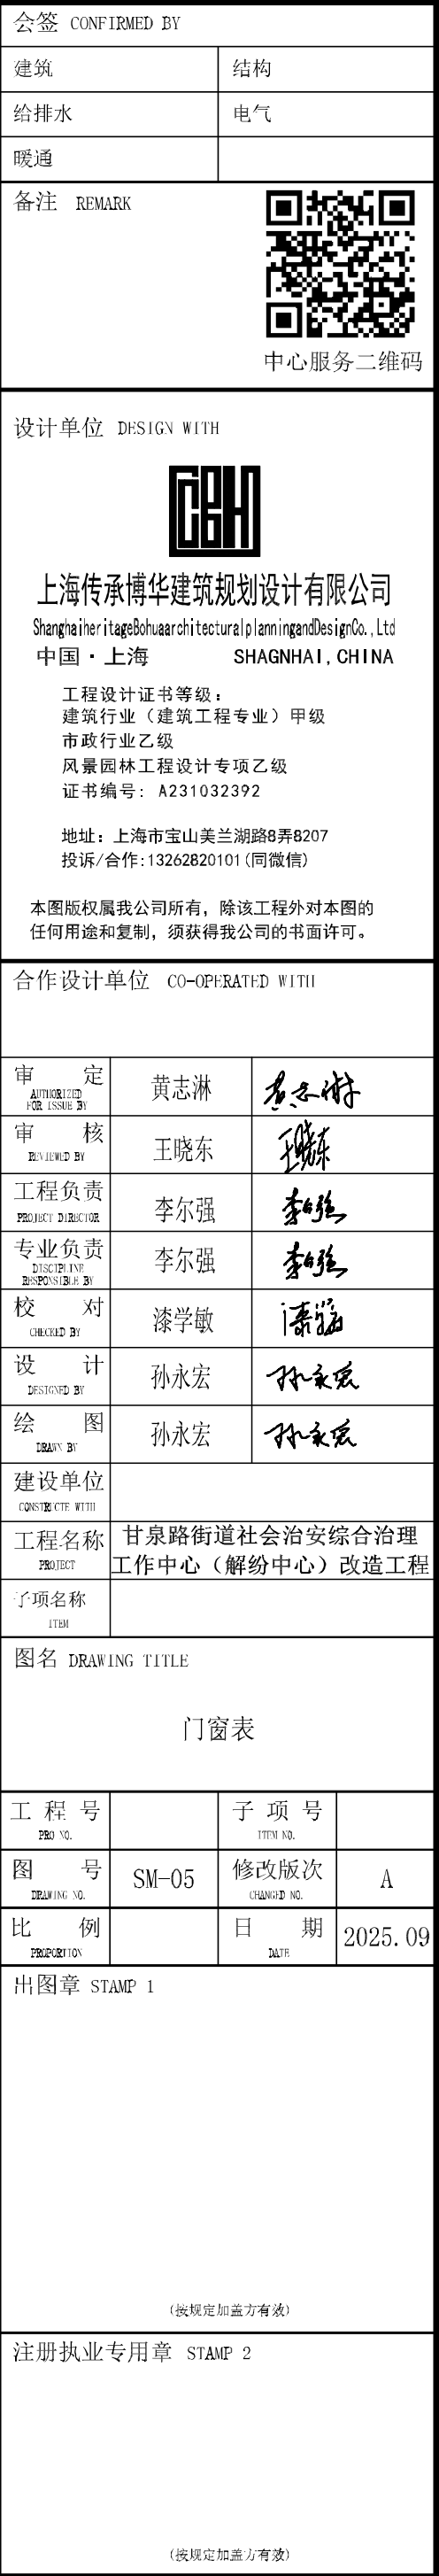 会签 CONFIRMED BY
建筑 结构
给排水 电气
暖通
备注 REMARK
中心服务二维码
设计单位 DESIGN WITH
CBH
上海传承博华建筑规划设计有限公司
ShanghaiheritageBohuaarchitecturalplanningandDesignCo.,Ltd
中国·上海 SHAGNHAI,CHINA
工程设计证书等级：
建筑行业（建筑工程专业）甲级
市政行业乙级
风景园林工程设计专项乙级
证书编号: A231032392
地址：上海市宝山美兰湖路8弄8207
投诉/合作:13262820101(同微信)
本图版权属我公司所有，除该工程外对本图的
任何用途和复制，须获得我公司的书面许可。
合作设计单位 CO-OPERATED WITH
审 定 黄志淋 黄志淋
AUTHORIZED
FOR ISSUE BY
审 核 王晓东 王晓东
REVIEWED BY
工程负责 李尔强 李尔强
PROJECT DIRECTOR
专业负责 李尔强 李尔强
DISCIPLINE
RESPONSIBLE BY
校 对 漆学敏 漆学敏
CHECKED BY
设 计 孙永宏 孙永宏
DESIGNED BY
绘 图 孙永宏 孙永宏
DRAWN BY
建设单位
CONSTRUCTE WITH
工程名称 甘泉路街道社会治安综合治理
PROJECT 工作中心（解纷中心）改造工程
子项名称
ITEM
图名 DRAWING TITLE
门窗表
工 程 号 子 项 号
PRO NO. ITEM NO.
图 号 SM-05 修改版次 A
DRAWING NO. CHANGED NO.
比 例 日 期 2025.09
PROPORTION DATE
出图章 STAMP 1
(按规定加盖方有效)
注册执业专用章 STAMP 2
(按规定加盖方有效)